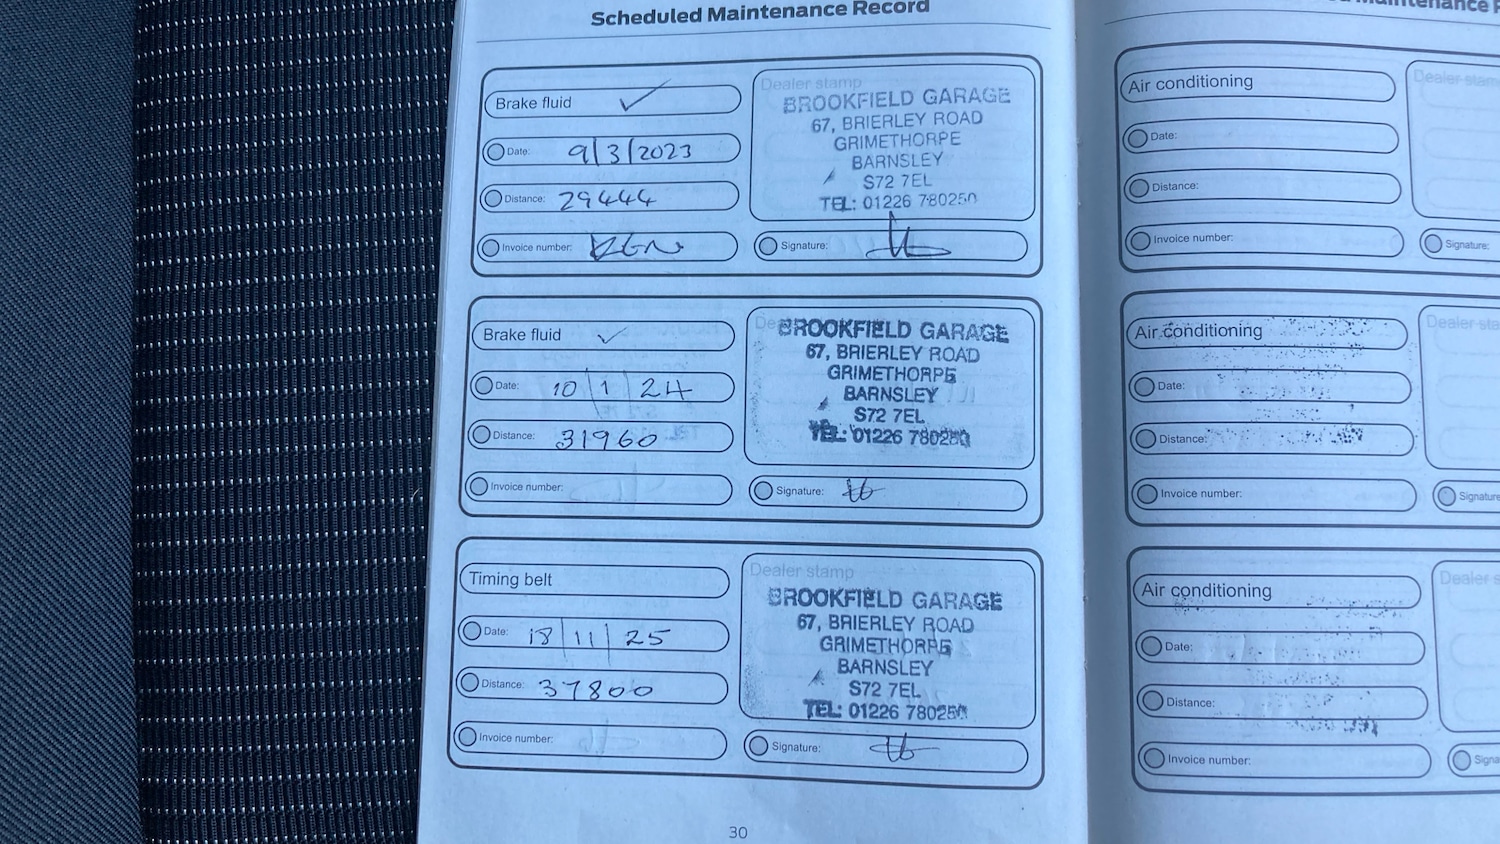 Scheduled Maintenance Record
Brake fluid ✓
Date: 9/3/2023
Distance: 29444
Invoice number:
Dealer stamp
BROOKFIELD GARAGE
67, BRIERLEY ROAD
GRIMETHORPE
BARNSLEY
S72 7EL
TEL: 01226 780250
Signature:
Brake fluid ✓
Date: 10/1/24
Distance: 31960
Invoice number:
BROOKFIELD GARAGE
67, BRIERLEY ROAD
GRIMETHORPE
BARNSLEY
S72 7EL
TEL: 01226 780250
Signature:
Timing belt
Date: 18/11/25
Distance: 37800
Invoice number:
Dealer stamp
BROOKFIELD GARAGE
67, BRIERLEY ROAD
GRIMETHORPE
BARNSLEY
S72 7EL
TEL: 01226 780250
Signature:
30
Air conditioning
Date:
Distance:
Invoice number:
Dealer
Signature:
Air conditioning
Date:
Distance:
Invoice number:
Dealer
Signature
Air conditioning
Date:
Distance:
Invoice number:
Dealer